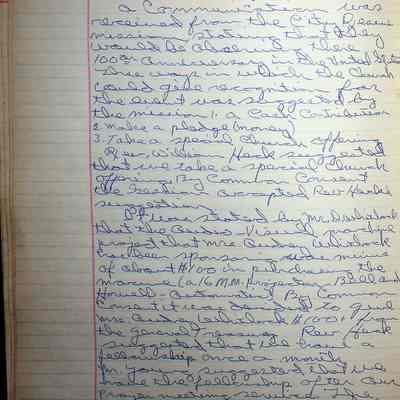 a Communication was
received from the City Rescue
mission stating that they
would be observing there
100th anniversary in the United States
Three ways in which the Church
could give recognition for
the event was suggested by
the mission: 1. a Cash Contribution
2. make a pledge (money)
3. Take a special Church offering
Rev. William Hock suggested
that we take a special Church
offering. By Common Consent
the meeting accepted Rev Hock's
suggestion.
It was stated by Mr.
that the Audio-Visual
project that Mrs Audrey
has been sponsoring
of about $100 in purchasing the
machine (a 16 M.M. projector Bell and
Howell - Automatic) By Common
Consent it was decided to give
Mrs $100 from
the general treasury. Rev. Hock
suggested that we have a
fellowship once a month
suggested that we
have the fellowship after our
prayer meeting service. The